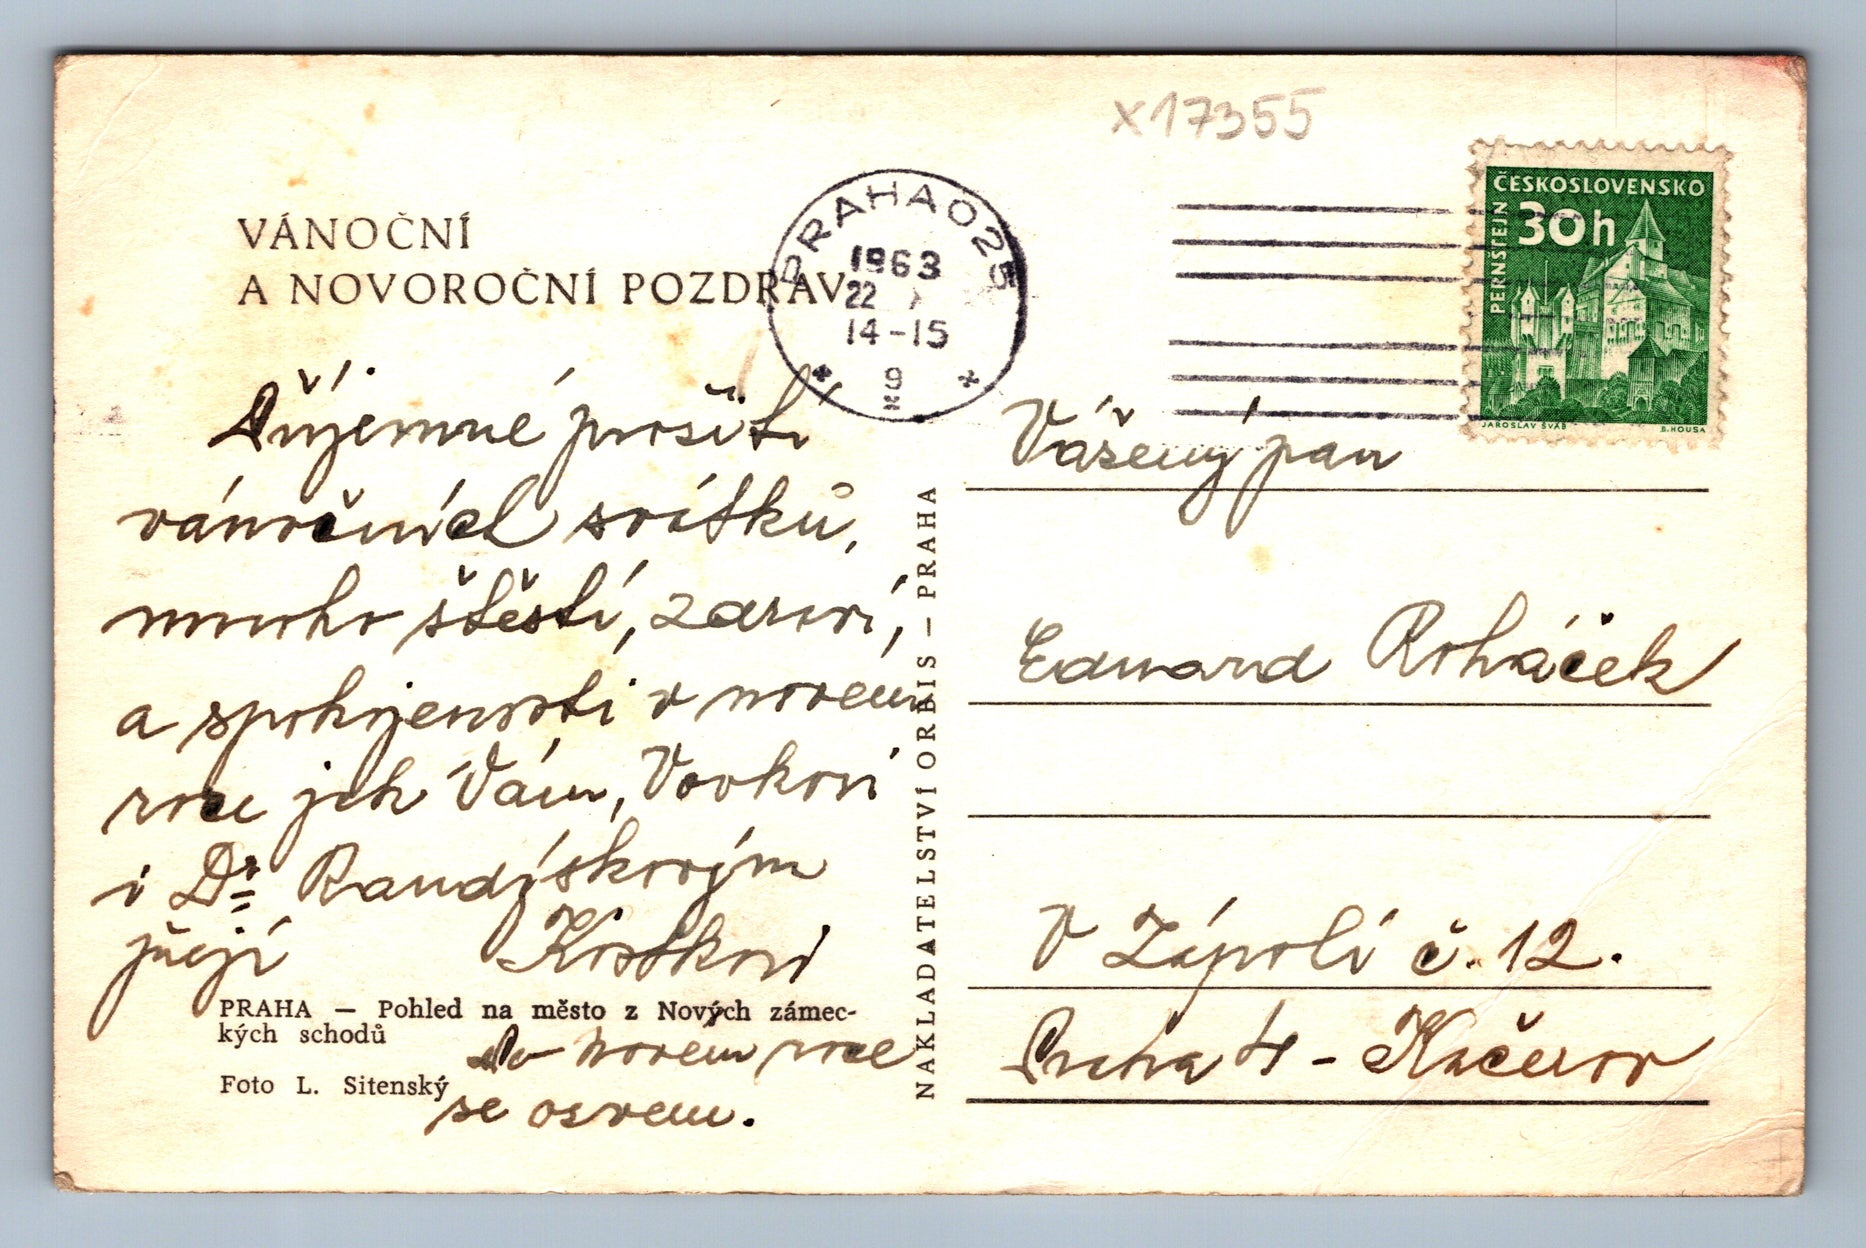 x17355
VÁNOČNÍ
A NOVOROČNÍ POZDRAV
PRAHA 025
1963
22
14-15
9
ČESKOSLOVENSKO
30h
PERNŠTEJN
JAROSLAV ŠVÁB
B. HOUSA
Příjemné prožití
vánočních svátků,
mnoho štěstí, zdraví,
a spokojenosti v novém
roce jak Vám, Vovkovi
i Dr Randýskovým
přejí Kostkovi
PRAHA — Pohled na město z Nových zámec-
kých schodů
Po novém roce
Foto L. Sitenský
se ozveme.
NAKLADATELSTVÍ ORBIS – PRAHA
Vážený pan
Eduard Roháček
V Zápolí č. 12.
Praha 4 - Kačerov